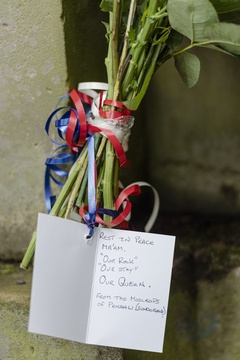 REST IN PEACE
MA'AM.
"OUR ROCK"
"OUR STAY"
OUR QUEEN.
FROM THE
OF